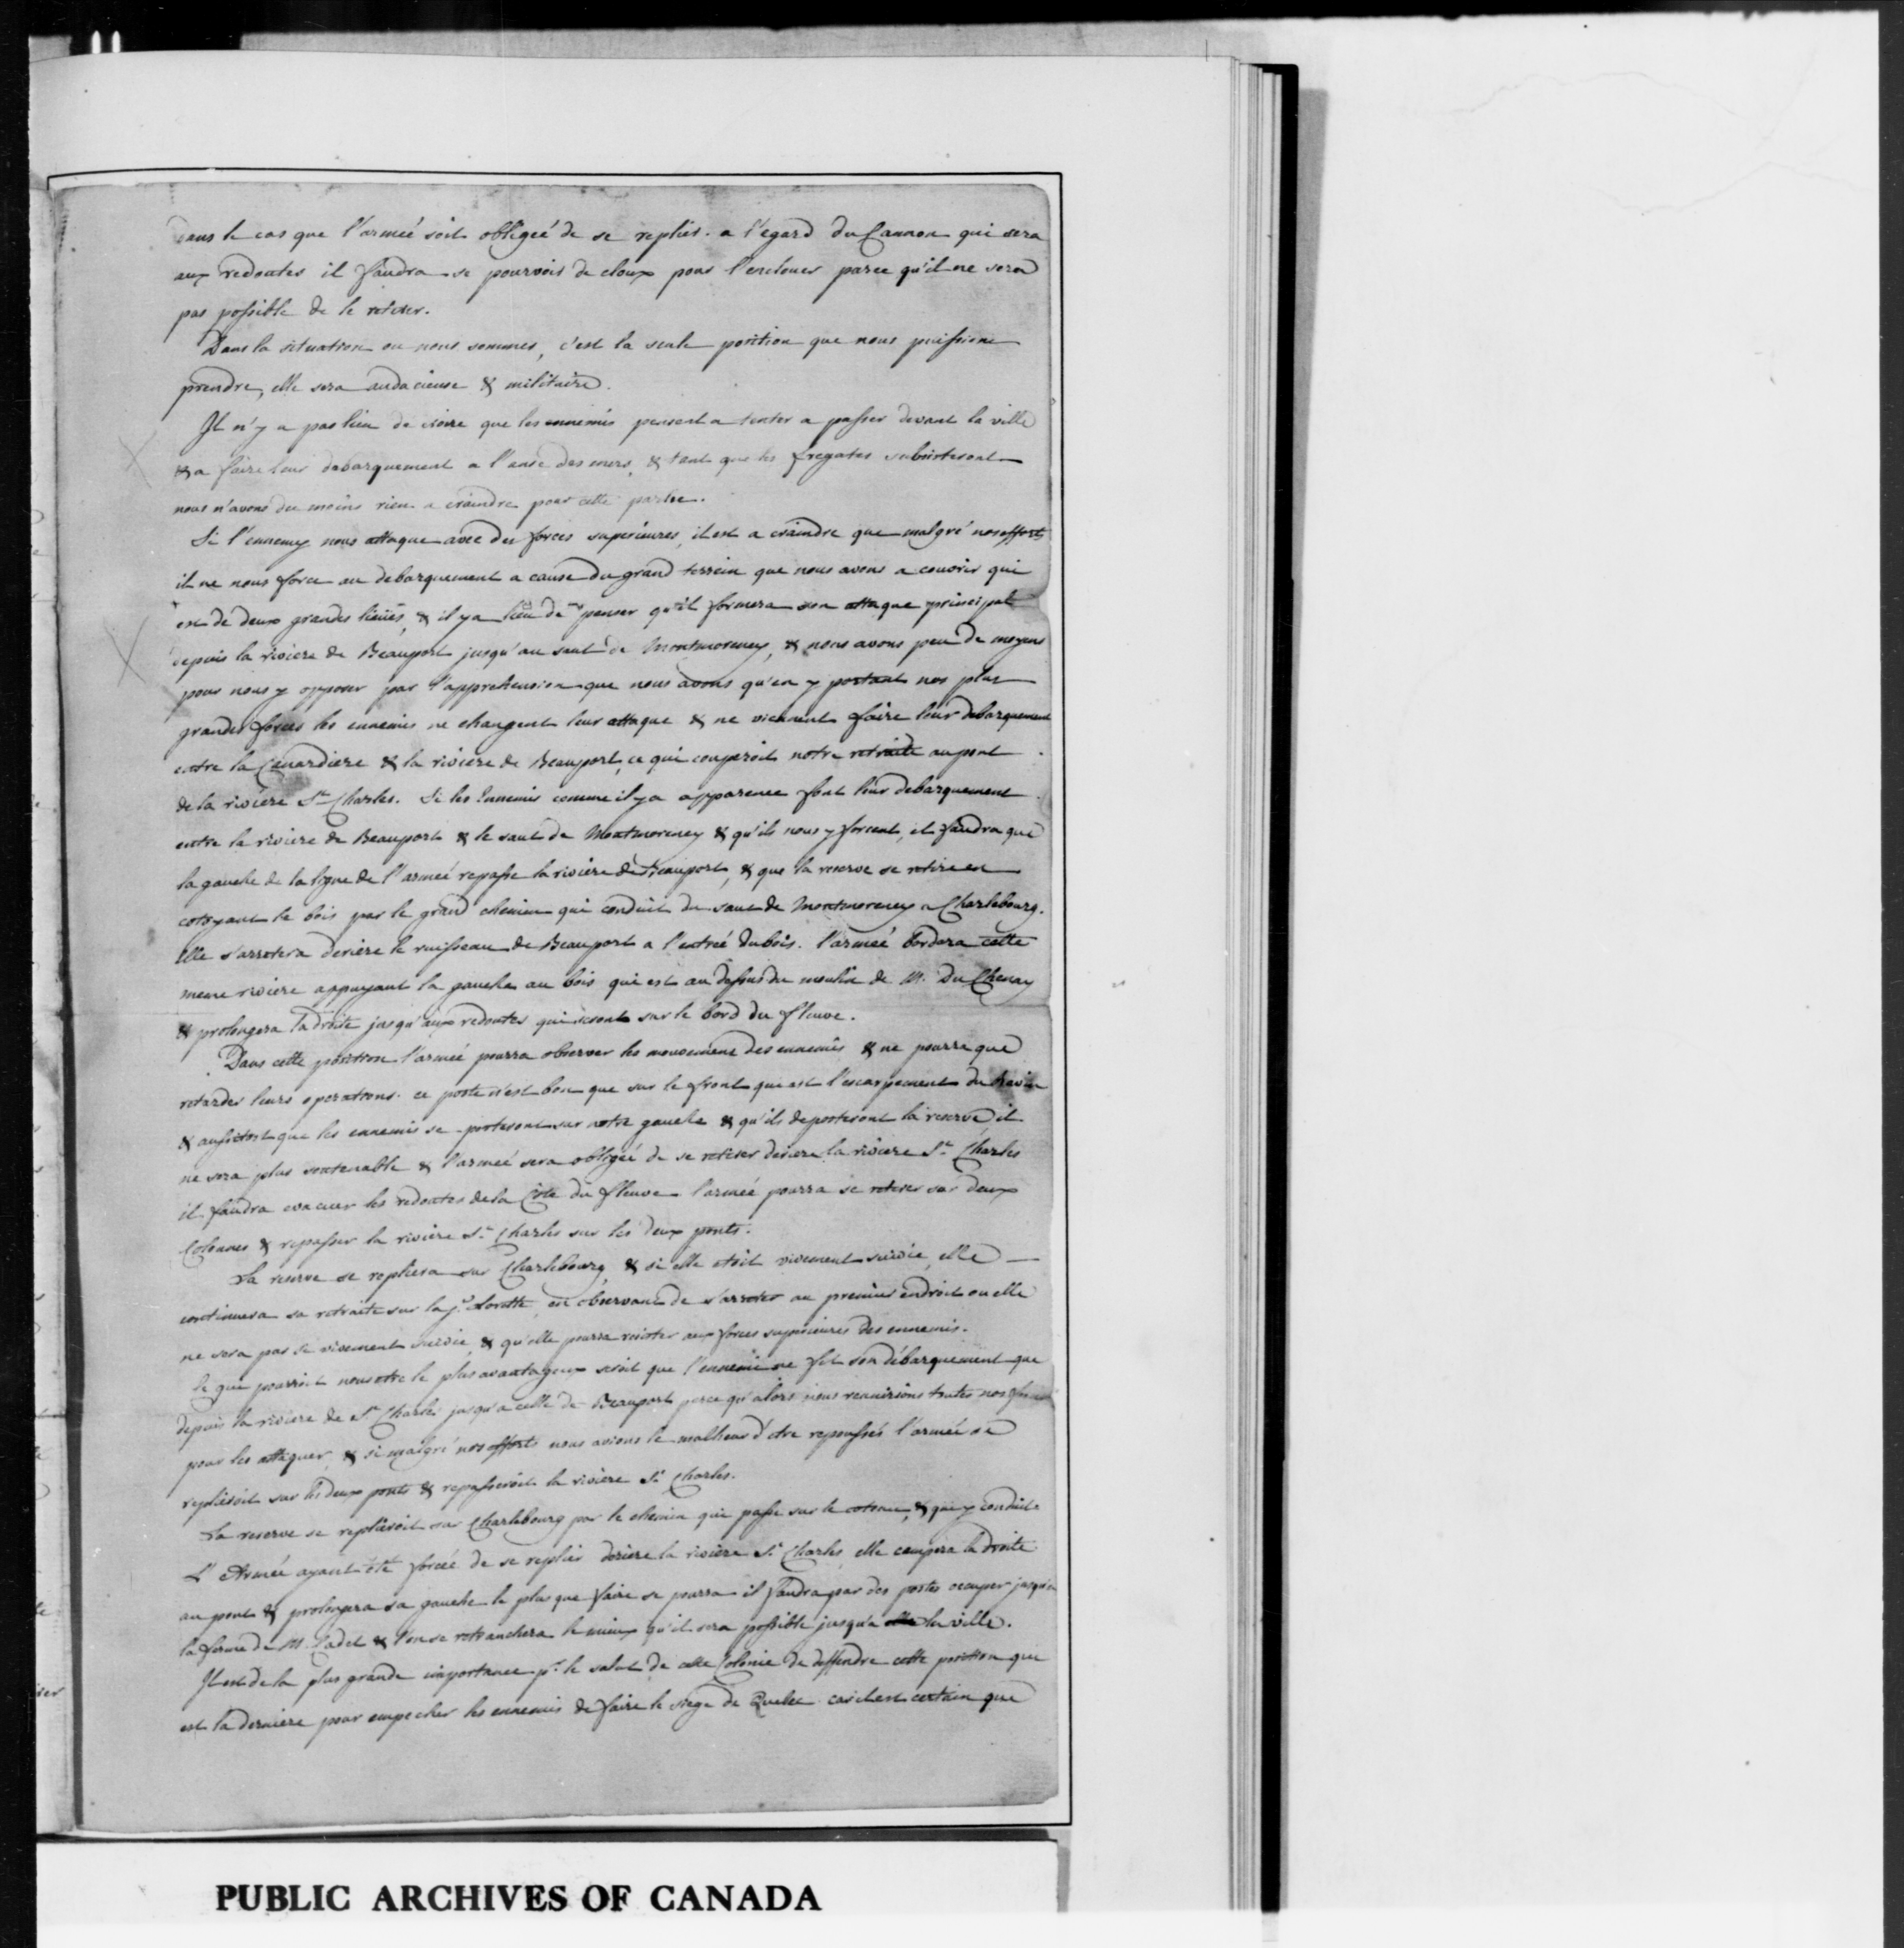 dans le cas que l'armeé soit obligeé de se replier. a l'egard du Cannon qui sera
aux redoutes il faudra se pourvoir de cloux pour l'enclouer parce qu'il ne sera
pas possible de le retirer.
Dans la situation ou nous sommes, c'est la seule position que nous puissions
prendre, elle sera audacieuse & militaire.
Il n'y a pas lieu de croire que les ennemis pensent a tenter a passer devant la ville
& a faire leur debarquement a l'anse des mers, & tant que les fregates subsisteront
nous n'avons du moins rien a craindre pour cette partie.
Si l'ennemy nous attaque avec des forces superieures, il est a craindre que malgré nos efforts
il ne nous force au debarquement a cause du grand terrein que nous avons a couvrir qui
est de deux grandes lieües, & il y a lieu de penser qu'il formera son attaque principale
depuis la riviere de Beauport jusqu'au saut de Montmorency, & nous avons peu de moyens
pour nous y opposer par l'apprehension que nous avons qu'en y portant nos plus
grandes forces les ennemis ne changent leur attaque & ne viennent faire leur debarquement
entre la Canardiere & la riviere de Beauport, ce qui couperoit notre retraite au pont
de la riviere St Charles. Si les Ennemis comme il y a apparence font leur debarquement
entre la riviere de Beauport & le saut de Montmorency & qu'ils nous y forcent, il faudra que
la gauche de la ligne de l'armeé repasse la riviere de Beauport, & que la reserve se retire en
cotoyant le bois par le grand chemin qui conduit du saut de Montmorency a Charlebourg.
Elle s'arretera deriere le ruisseau de Beauport a l'entreé du bois. l'armeé bordera cette
meme riviere appuyant la gauche au bois qui est au dessus du moulin de M. Du Chenay
& prolongera la droite jusqu'aux redoutes qui seront sur le bord du fleuve.
Dans cette position l'armeé pourra observer les mouvemens des ennemis & ne pourra que
retarder leurs operations. ce poste n'est bon que sur le front qui est l'escarpement du ravin
& aussitost que les ennemis se porteront sur notre gauche & qu'ils deposteront la reserve il
ne sera plus soutenable & l'armeé sera obligeé de se retirer deriere la riviere St Charles
il faudra evacuer les redoutes de la Cote du fleuve l'armeé pourra se retirer sur deux
Colonnes & repasser la riviere St Charles sur les deux ponts.
La reserve se repliera sur Charlebourg & si elle etoit vivement suivie, elle
continuera sa retraite sur la je Lorette en observant de s'arreter au premier endroit ou elle
ne sera pas si vivement suivie & qu'elle pourra resister aux forces superieures des ennemis.
Ce qui pourroit nous etre le plus avantageux seroit que l'ennemi ne fit son débarquement que
depuis la riviere de St Charles jusqu'a celle de Beauport parce qu'alors nous reunirions toutes nos forces
pour les attaquer, & si malgré nos efforts nous avions le malheur d'etre repoussés l'armeé se
replieroit sur les deux ponts & repasseroit la riviere St Charles.
La reserve se replieroit sur Charlebourg par le chemin qui passe sur le coteau, & qui y conduit
L'Armeé ayant été forceé de se replier deriere la riviere St Charles, elle campera la droite
au pont & prolongera sa gauche le plus que faire se pourra il faudra par des postes occuper jusqu'a
la ferme de M. Cadet & l'on se retranchera le mieux qu'il sera possible jusqu'a la ville.
Il est de la plus grande importance pr le salut de cette Colonie de deffendre cette position que
est la derniere pour empecher les ennemis de faire le siege de Quebec car il est certain que
PUBLIC ARCHIVES OF CANADA